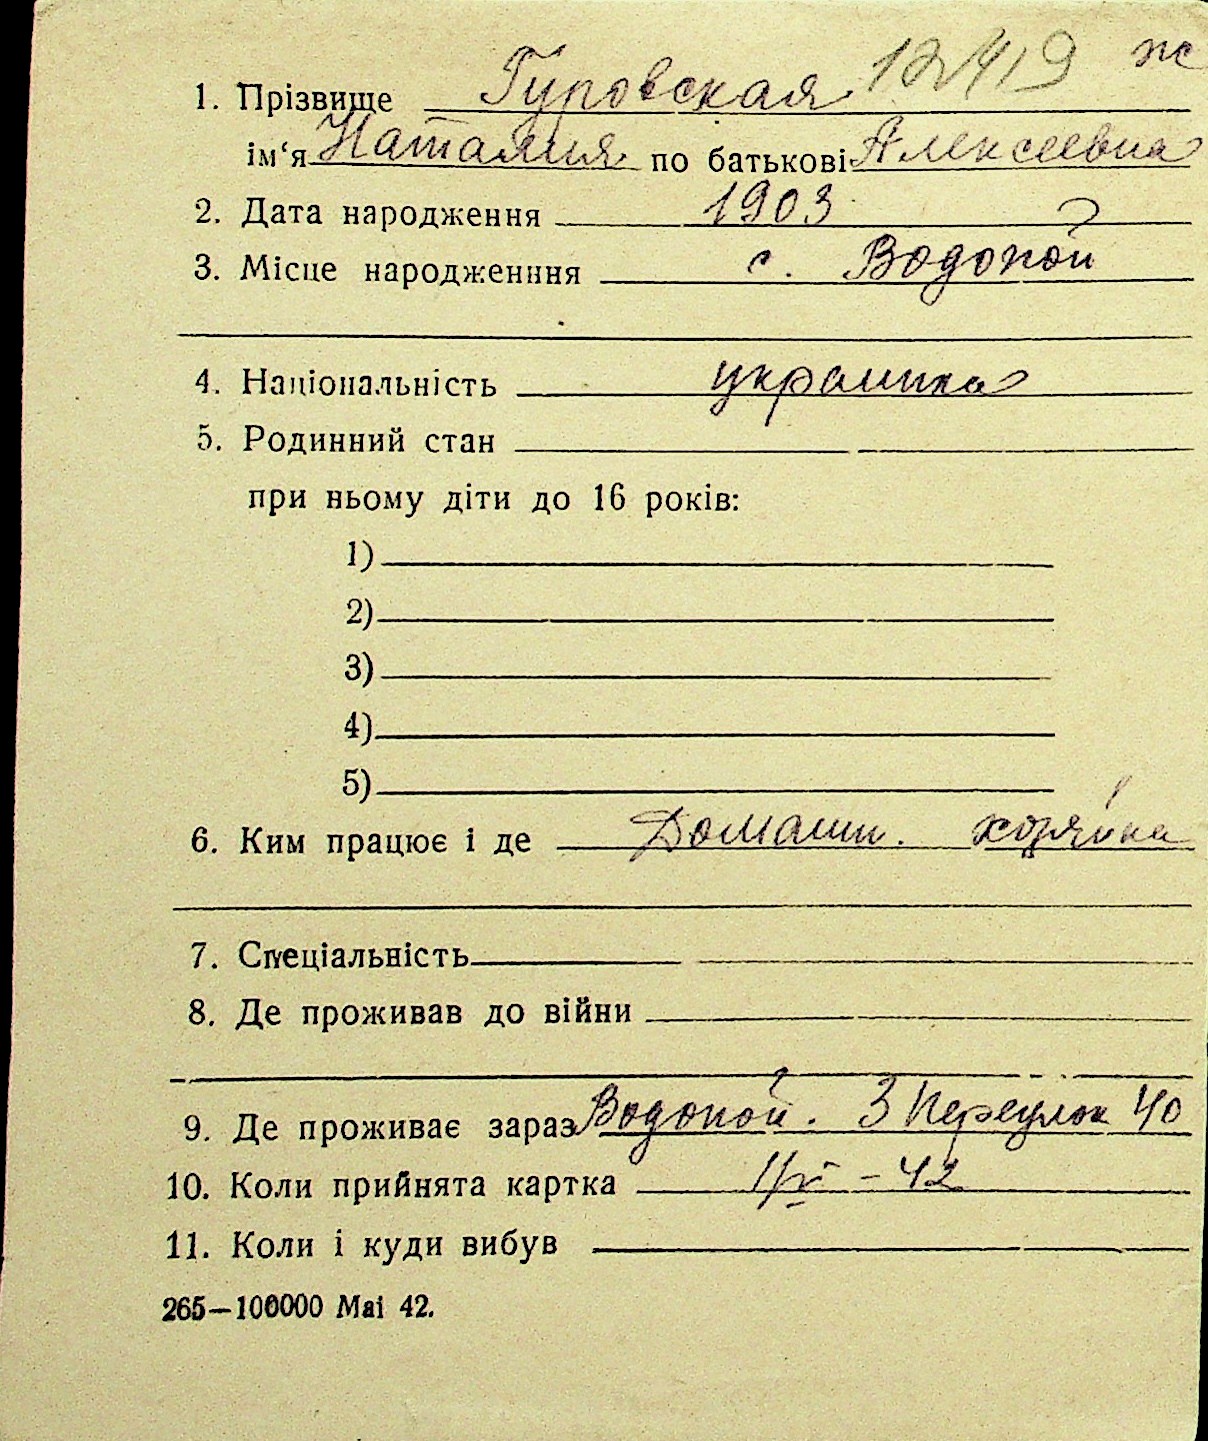 12419 ж
1. Прізвище Гуровская
ім‘я Наталия по батькові Алексеевна
2. Дата народження 1903
3. Місце народженння с. Водопой
4. Національність украинка
5. Родинний стан
при ньому діти до 16 років:
1)
2)
3)
4)
5)
6. Ким працює і де Домашн. хозяйка
7. Спеціальність
8. Де проживав до війни
9. Де проживає зараз Водопой. 3 Переулок 40
10. Коли прийнята картка - 42
11. Коли і куди вибув
265—100000 Mai 42.